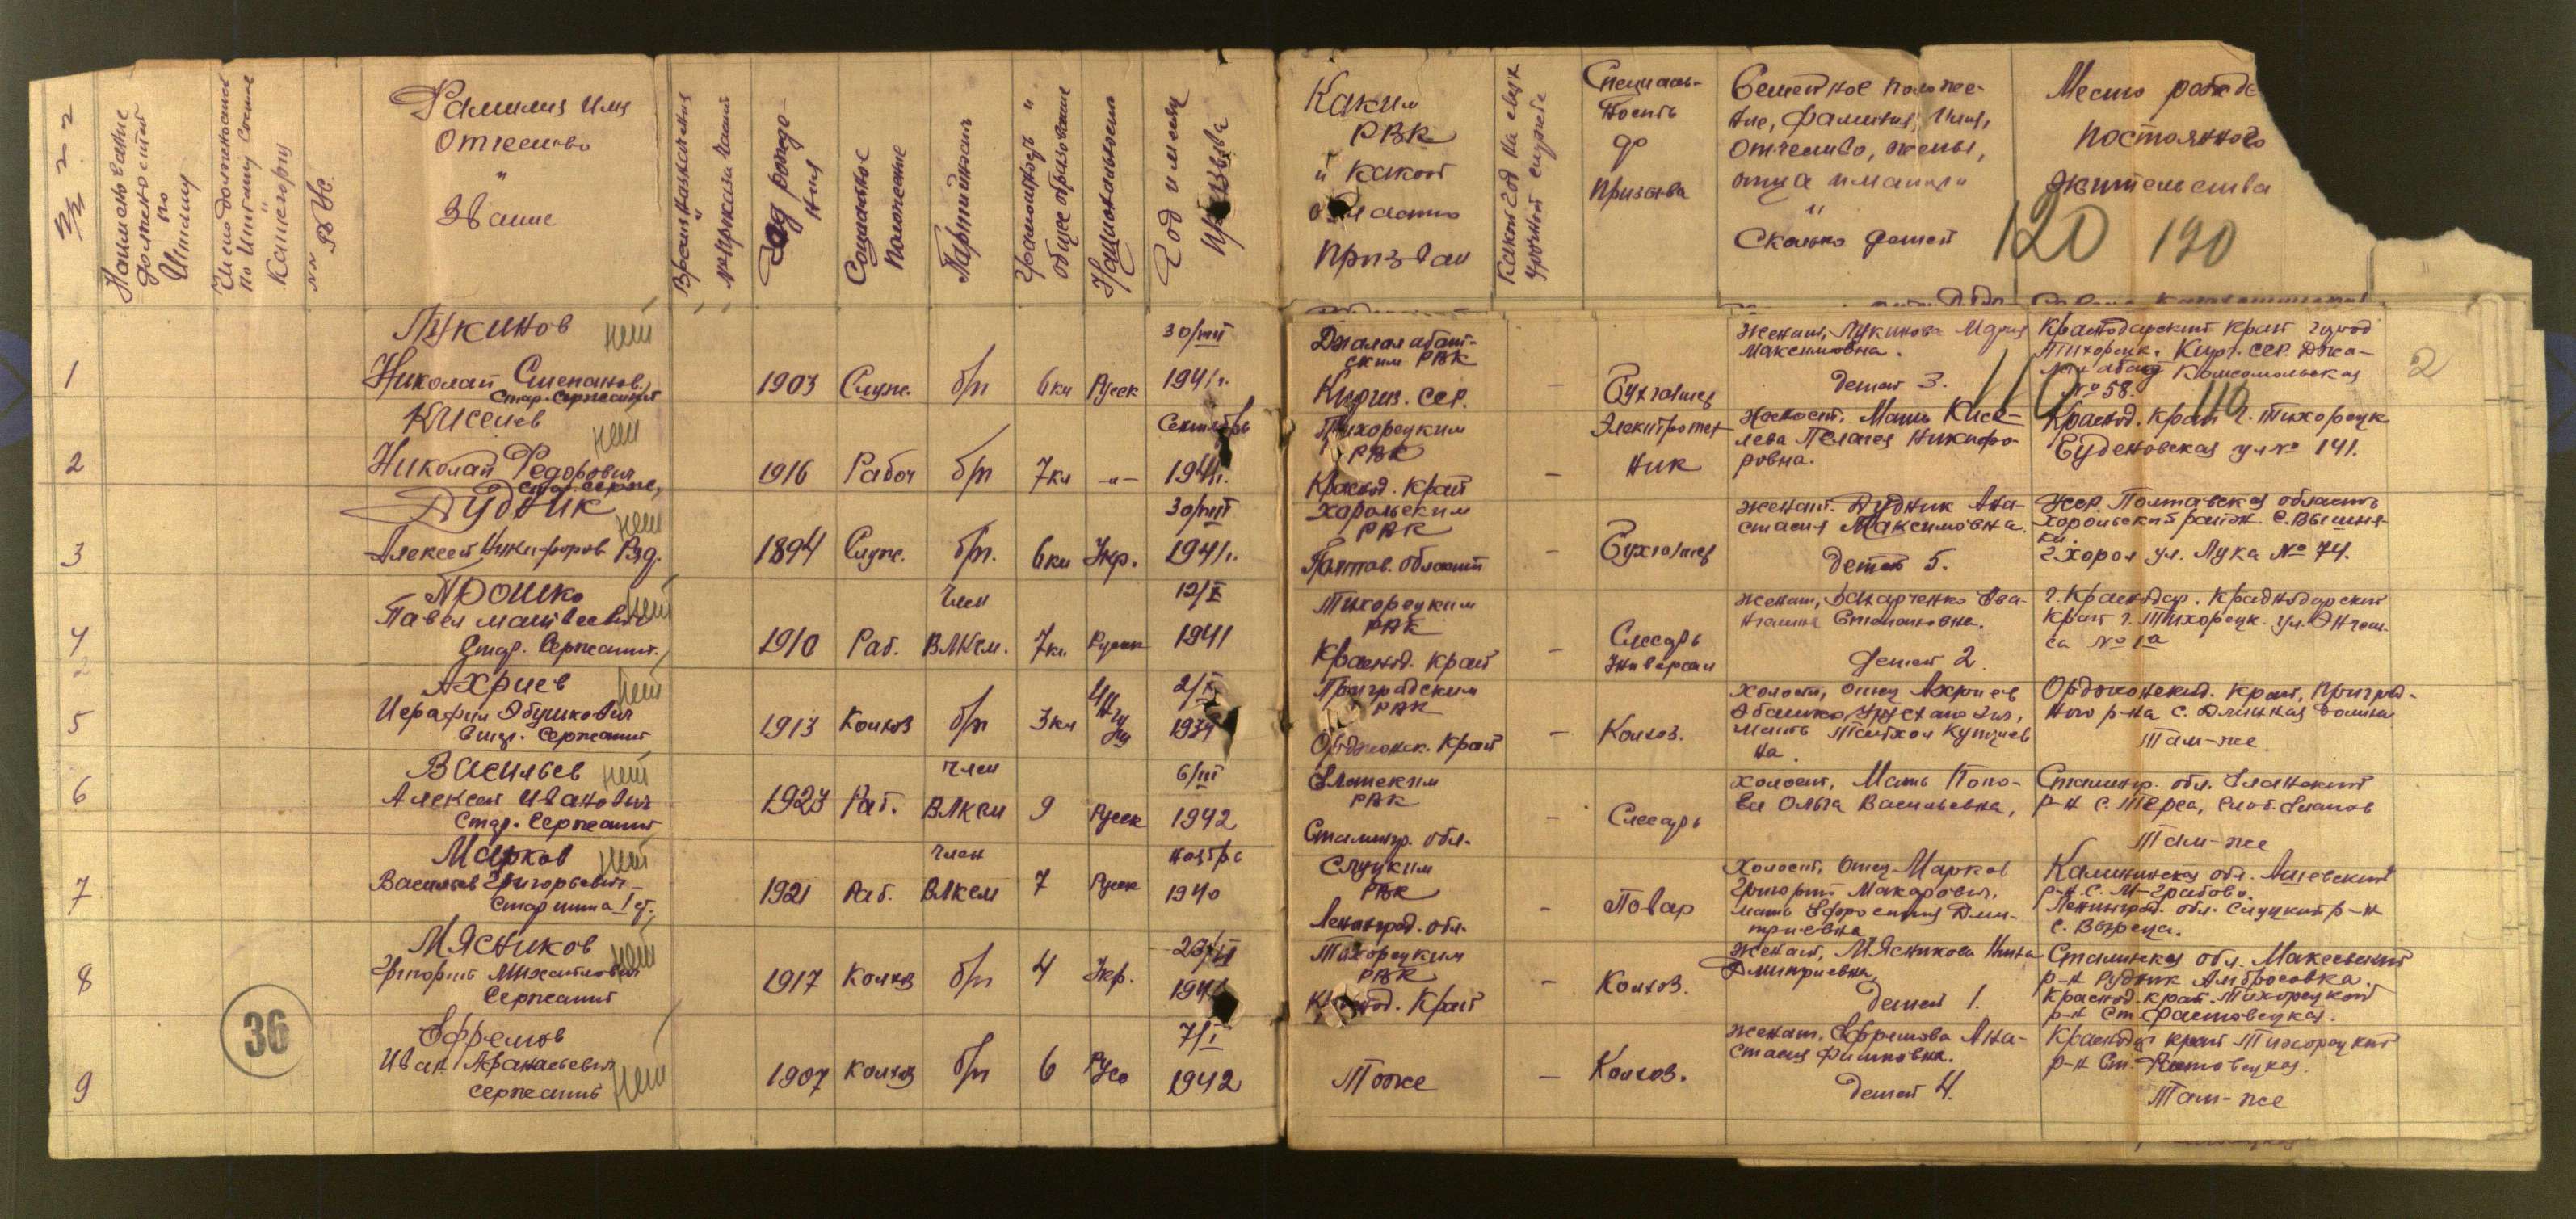 Фамилия Имя
Отчество
"
Звание
Год рожде-
ния
Социальное
Положение
Партийность
Грамотность и
общее образование
Национальность
Год и месяц
Призыва
Каким
РВК
и какой
области
Призван
Какой год на
срочной службе
Специаль-
ность
до
Призыва
Семейное положе-
ние, фамилия, имя,
отчество, жены,
отца и матери
"
Сколько детей
Место
постоянного
жительства
120 120
1
Лукинов нет
Николай Степанов.
Стар. Сержант
1903 Служ. б/п 6кл Русск
30/VIII
1941г.
Джалал абат-
ским РВК
Киргиз. ССР.
–
Бухгалтер
женат, Лукинова Мария
Максимовна.
детей 3.
Краснодарский край город
Тихорецк. Кирг. ССР. Джа-
лал абад Комсомольская
№ 58.
110 110
2
2
Киселев нет
Николай Федорович
Стар. серж.
1916 Рабоч б/п 7кл -"-
Сентябрь
1941г.
Тихорецким
РВК
Краснод. Край
–
Электротех
ник
Холост. Мать Кисе-
лева Пелагея Никифо-
ровна.
Краснод. Край г. Тихорецк
Буденовская ул № 141.
3
Дудник нет
Алексей Никифоров Ряд.
1894 Служ. б/п. 6кл Укр.
30/VIII
1941г.
Хорольским
РВК
Полтав. области
–
Бухгалтер
женат. Дудник Ана-
стасия Максимовна.
детей 5.
УССР. Полтавская область
Хорольский район. С. Вишня-
ки.
г. Хорол ул. Лука № 74.
4
Прошко нет
Павел Матвеевич
Стар. Сержант.
1910 Раб. Член
ВЛКСМ. 7кл. Русск
12/X
1941
Тихорецким
РВК
Краснод. край
–
Слесарь
Универсал
женат, Захарченко Ева-
Степановна.
Детей 2.
г. Краснодар. Краснодарский
Край г. Тихорецк. ул. Энгель-
са № 1а
5
Ахриев нет
Исрафил Эбушкович
Сержант
1913 Колхоз б/п 3кл Ингуш
Пригродским
РВК
Орджонек. Край
–
Колхоз.
холост, отец Ахриев
мать
на.
Орджонекид. Край, Пригрод-
ного р-на с. Длинная долина
Там-же.
6
Васильев нет
Алексей Иванович
Стар. Сержант
1923 Раб. Член
ВЛКСМ 9 Русск
6/III
1942
Еланским
РВК
Сталингр. обл.
–
Слесарь
холост, Мать Попо-
ва Ольга Васильевна,
Сталингр. обл. Еланский
р-н С. Терса, Слоб. Еланов
Там-же
7
Марков нет
Василий Григорьевич
Старшина I ст.
1921 Раб. Член
ВЛКСМ 7 Русск
Ноябрь
1940
Слуцким
РВК
Ленинград. обл.
–
Повар
Холост, отец Марков
Григорий Макарович,
мать Ефросиния Дми-
триевна
Калининская обл. Ашевский
р-н. С. М-Грабово.
Ленинград. обл. Слуцкий р-н
с. Вырица.
8
Мясников нет
Григорий Михайлович
Сержант
1917 Колхоз б/п 4 Укр.
Тихорецким
РВК
Краснод. Край
–
Колхоз.
женат, Мясникова Нина
Дмитриевна,
детей 1.
Сталинская обл. Макеевский
р-н Рудник Амбросовка.
Краснод. край. Тихорецкий
р-н Ст. Фастовецкая.
36
9
Ефремов
Иван Афанасьевич
сержант нет
1907 Колхоз б/п 6 Русс
7/I
1942
Тоже
–
Колхоз.
женат, Ефремова Ана-
стасия Филиповна.
детей 4.
Краснод. край Тихорецкий
р-н Ст. Фастовецкая.
Там-же